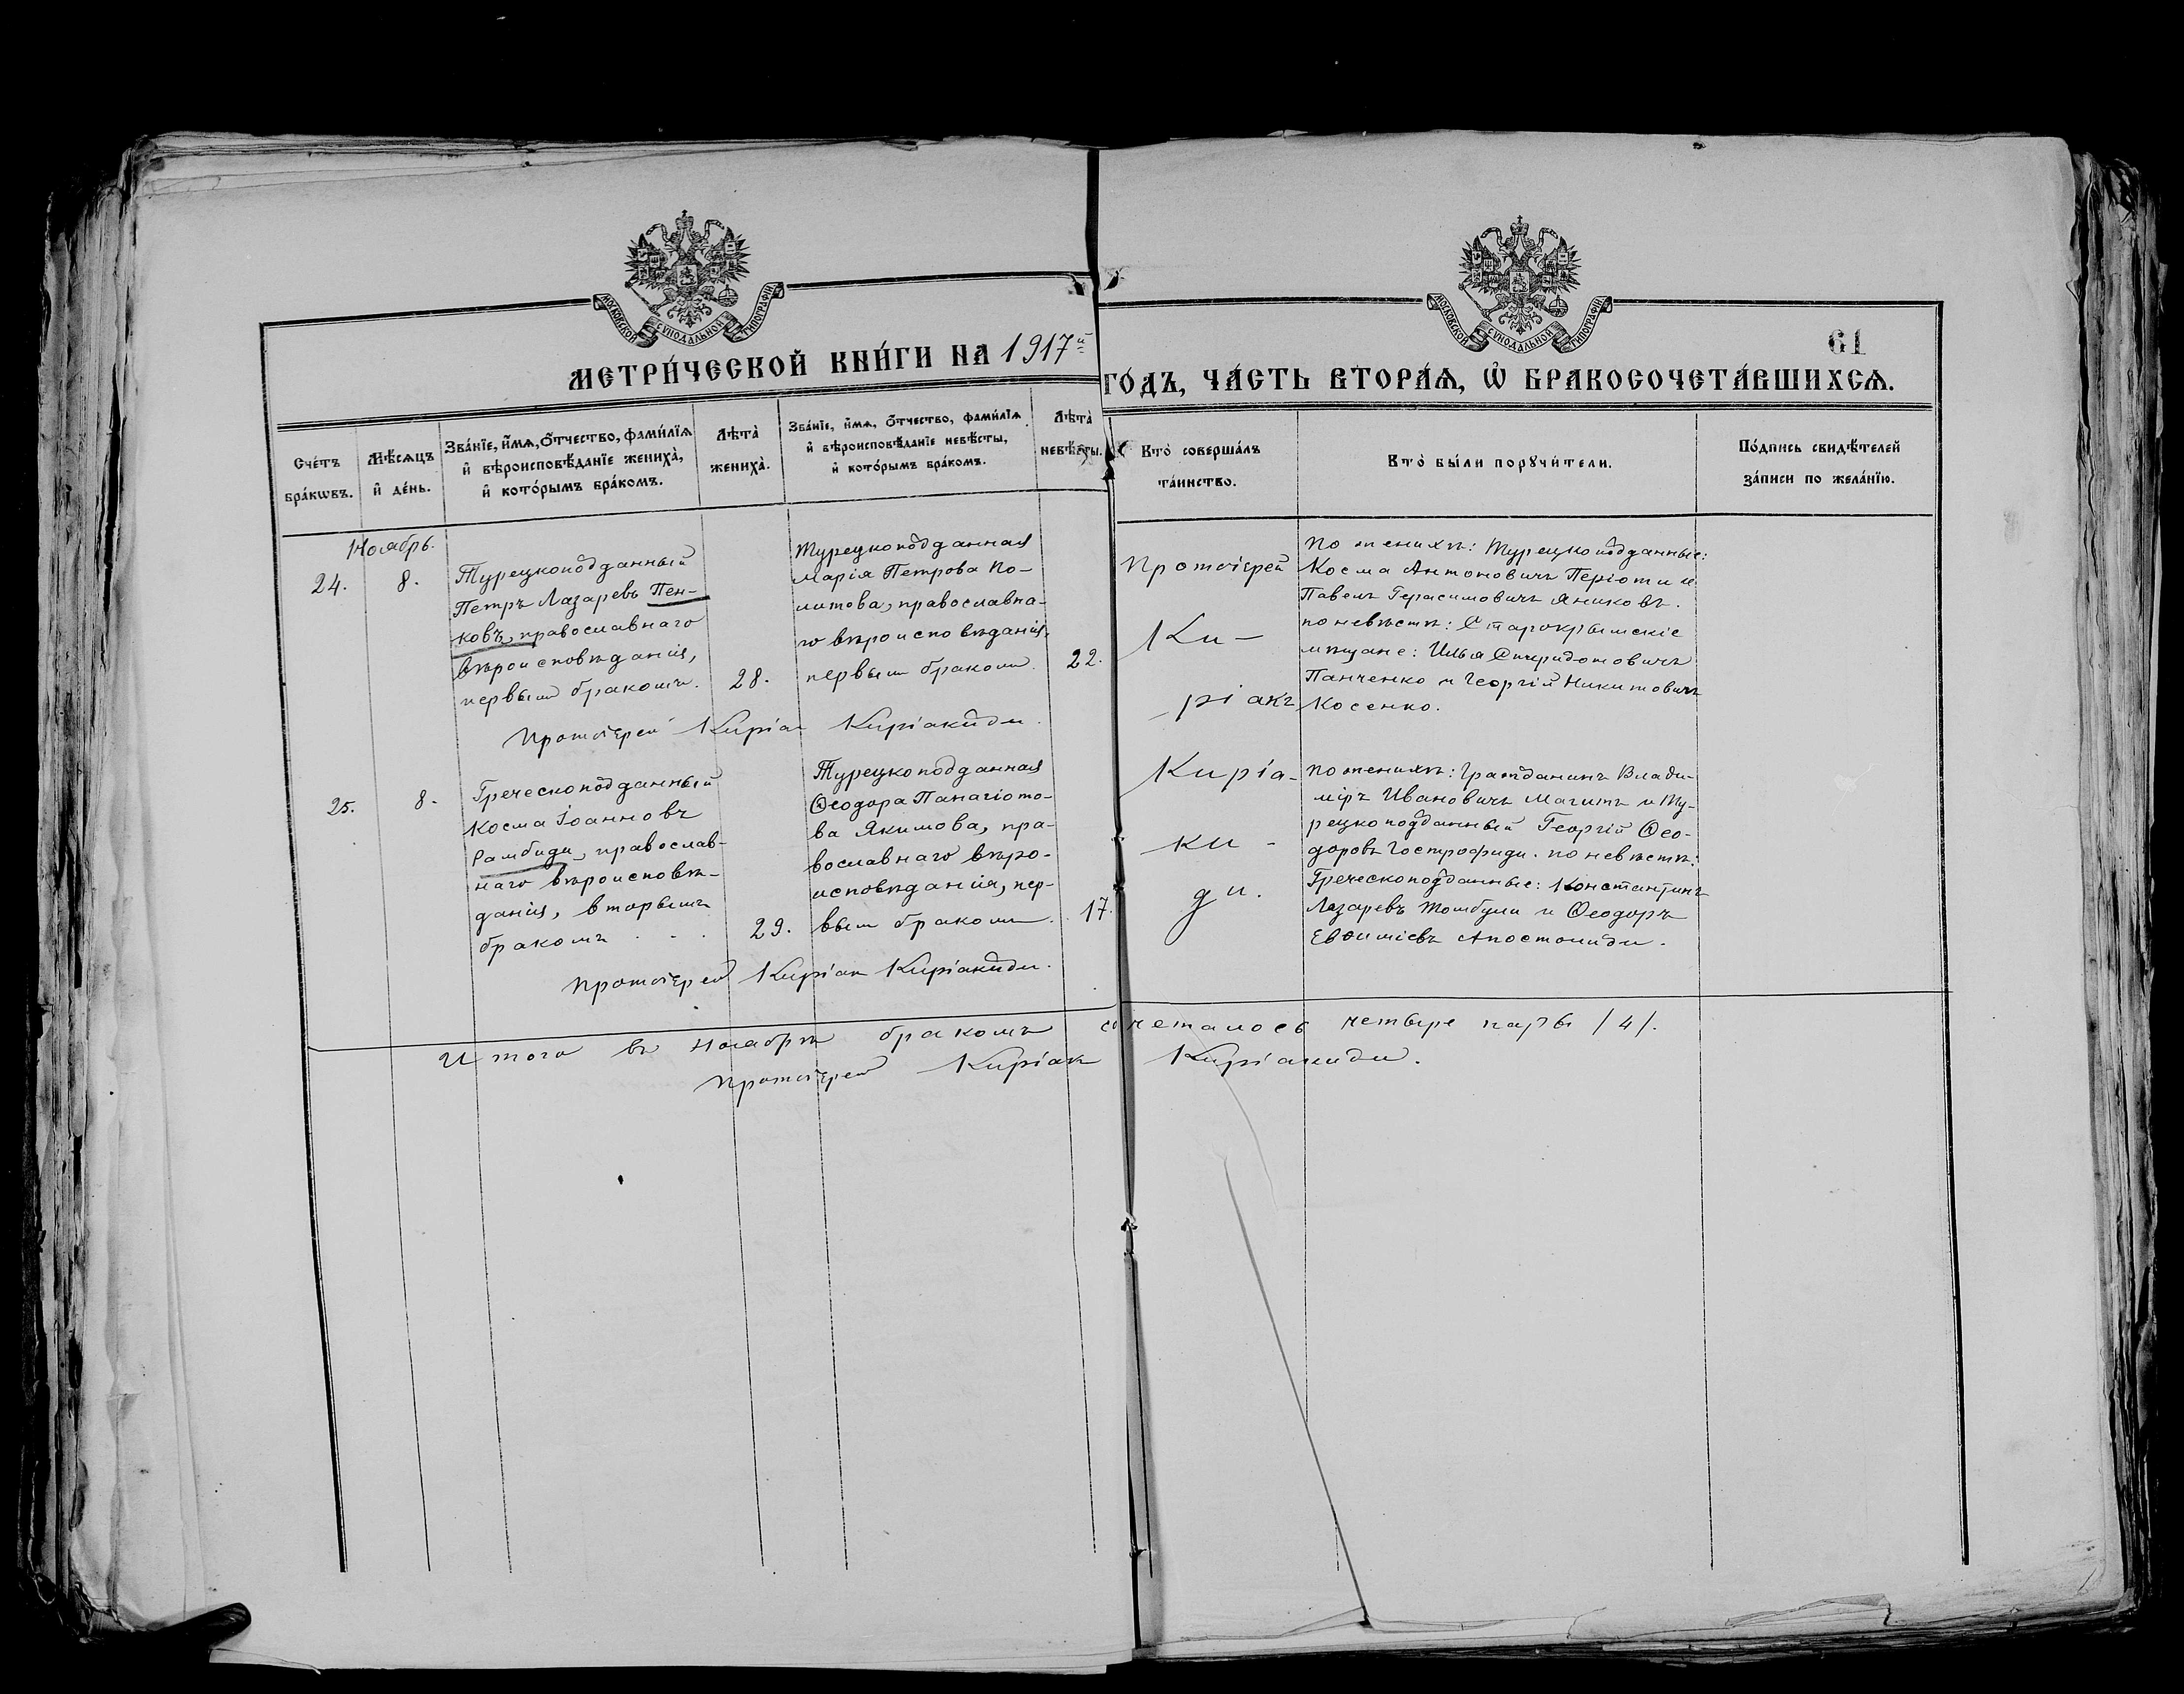 МОСКОВСКОЙ СУНОДАЛЬНОЙ ТИПОГРАФІИ
МОСКОВСКОЙ СУНОДАЛЬНОЙ ТИПОГРАФІИ
61
МЕТРИ́ЧЕСКОЙ КНИ́ГИ НА 1917й
ГО́ДЪ, ЧА́СТЬ ВТОРА́Ѧ, Ѽ БРАКОСОЧЕТА́ВШИХСѦ.
Сче́тъ
бра́кѡвъ.
Мѣ́сѧцъ
и҆ де́нь.
Зва́нїе, и҆́мѧ, ѻ҆́тчество, фами́лїѧ
и҆ вѣроисповѣ́данїе жениха̀,
и҆ кото́рымъ бра́комъ.
Лѣ́та̀
жениха̀.
Зва́нїе, и҆́мѧ, ѻ҆́тчество, фами́лїѧ
и҆ вѣроисповѣ́данїе невѣ́сты,
и҆ кото́рымъ бра́комъ.
Лѣ́та̀
невѣ́сты.
Кто̀ соверша́лъ
та́инство.
Кто̀ бы́ли порꙋчи́тели.
По́дпись свидѣ́телей
за́писи по жела́нїю.
Ноябрь.
24.
8.
Турецкоподданный
Петръ Лазаревъ Пен-
ковъ, православнаго
вѣроисповѣданія,
первымъ бракомъ.
28.
Турецкоподданная
Марія Петрова По-
литова, православна-
го вѣроисповѣданія,
первым бракомъ.
22.
Протоіерей
Ки-
ріакъ
По женихѣ: Турецкоподданные:
Косма Антоновичъ Періоти и
Павелъ Герасимовичъ Яниковъ.
по невѣстѣ: Старокрымскіе
мѣщане: Илья Спиридоновичъ
Панченко и Георгій Никитовичъ
Косенко.
Протоіерей Киріак Киріакиди.
25.
8.
Греческоподданный
Косма Іоанновъ
Рамбиди, православ-
наго вѣроисповѣ-
данія, вторымъ
бракомъ . . .
29.
Турецкоподданная
Ѳеодора Панагіото-
ва Якимова, пра-
вославнаго вѣро-
исповѣданія, пер-
вым бракомъ.
17.
Киріа-
ки-
ди.
По женихѣ: Гражданинъ Влади-
міръ Ивановичъ Магитъ и Ту-
рецкоподданный Георгій Ѳео-
доровъ Гострофиди. по невѣстѣ:
Греческоподданные: Константинъ
Лазаревъ Томбули и Ѳеодоръ
Евѳиміевъ Апостолиди.
Протоіерей Киріак Киріакиди.
Итого въ Ноябрѣ бракомъ сочеталось четыре пары /4/.
Протоіерей Киріак Киріакиди.